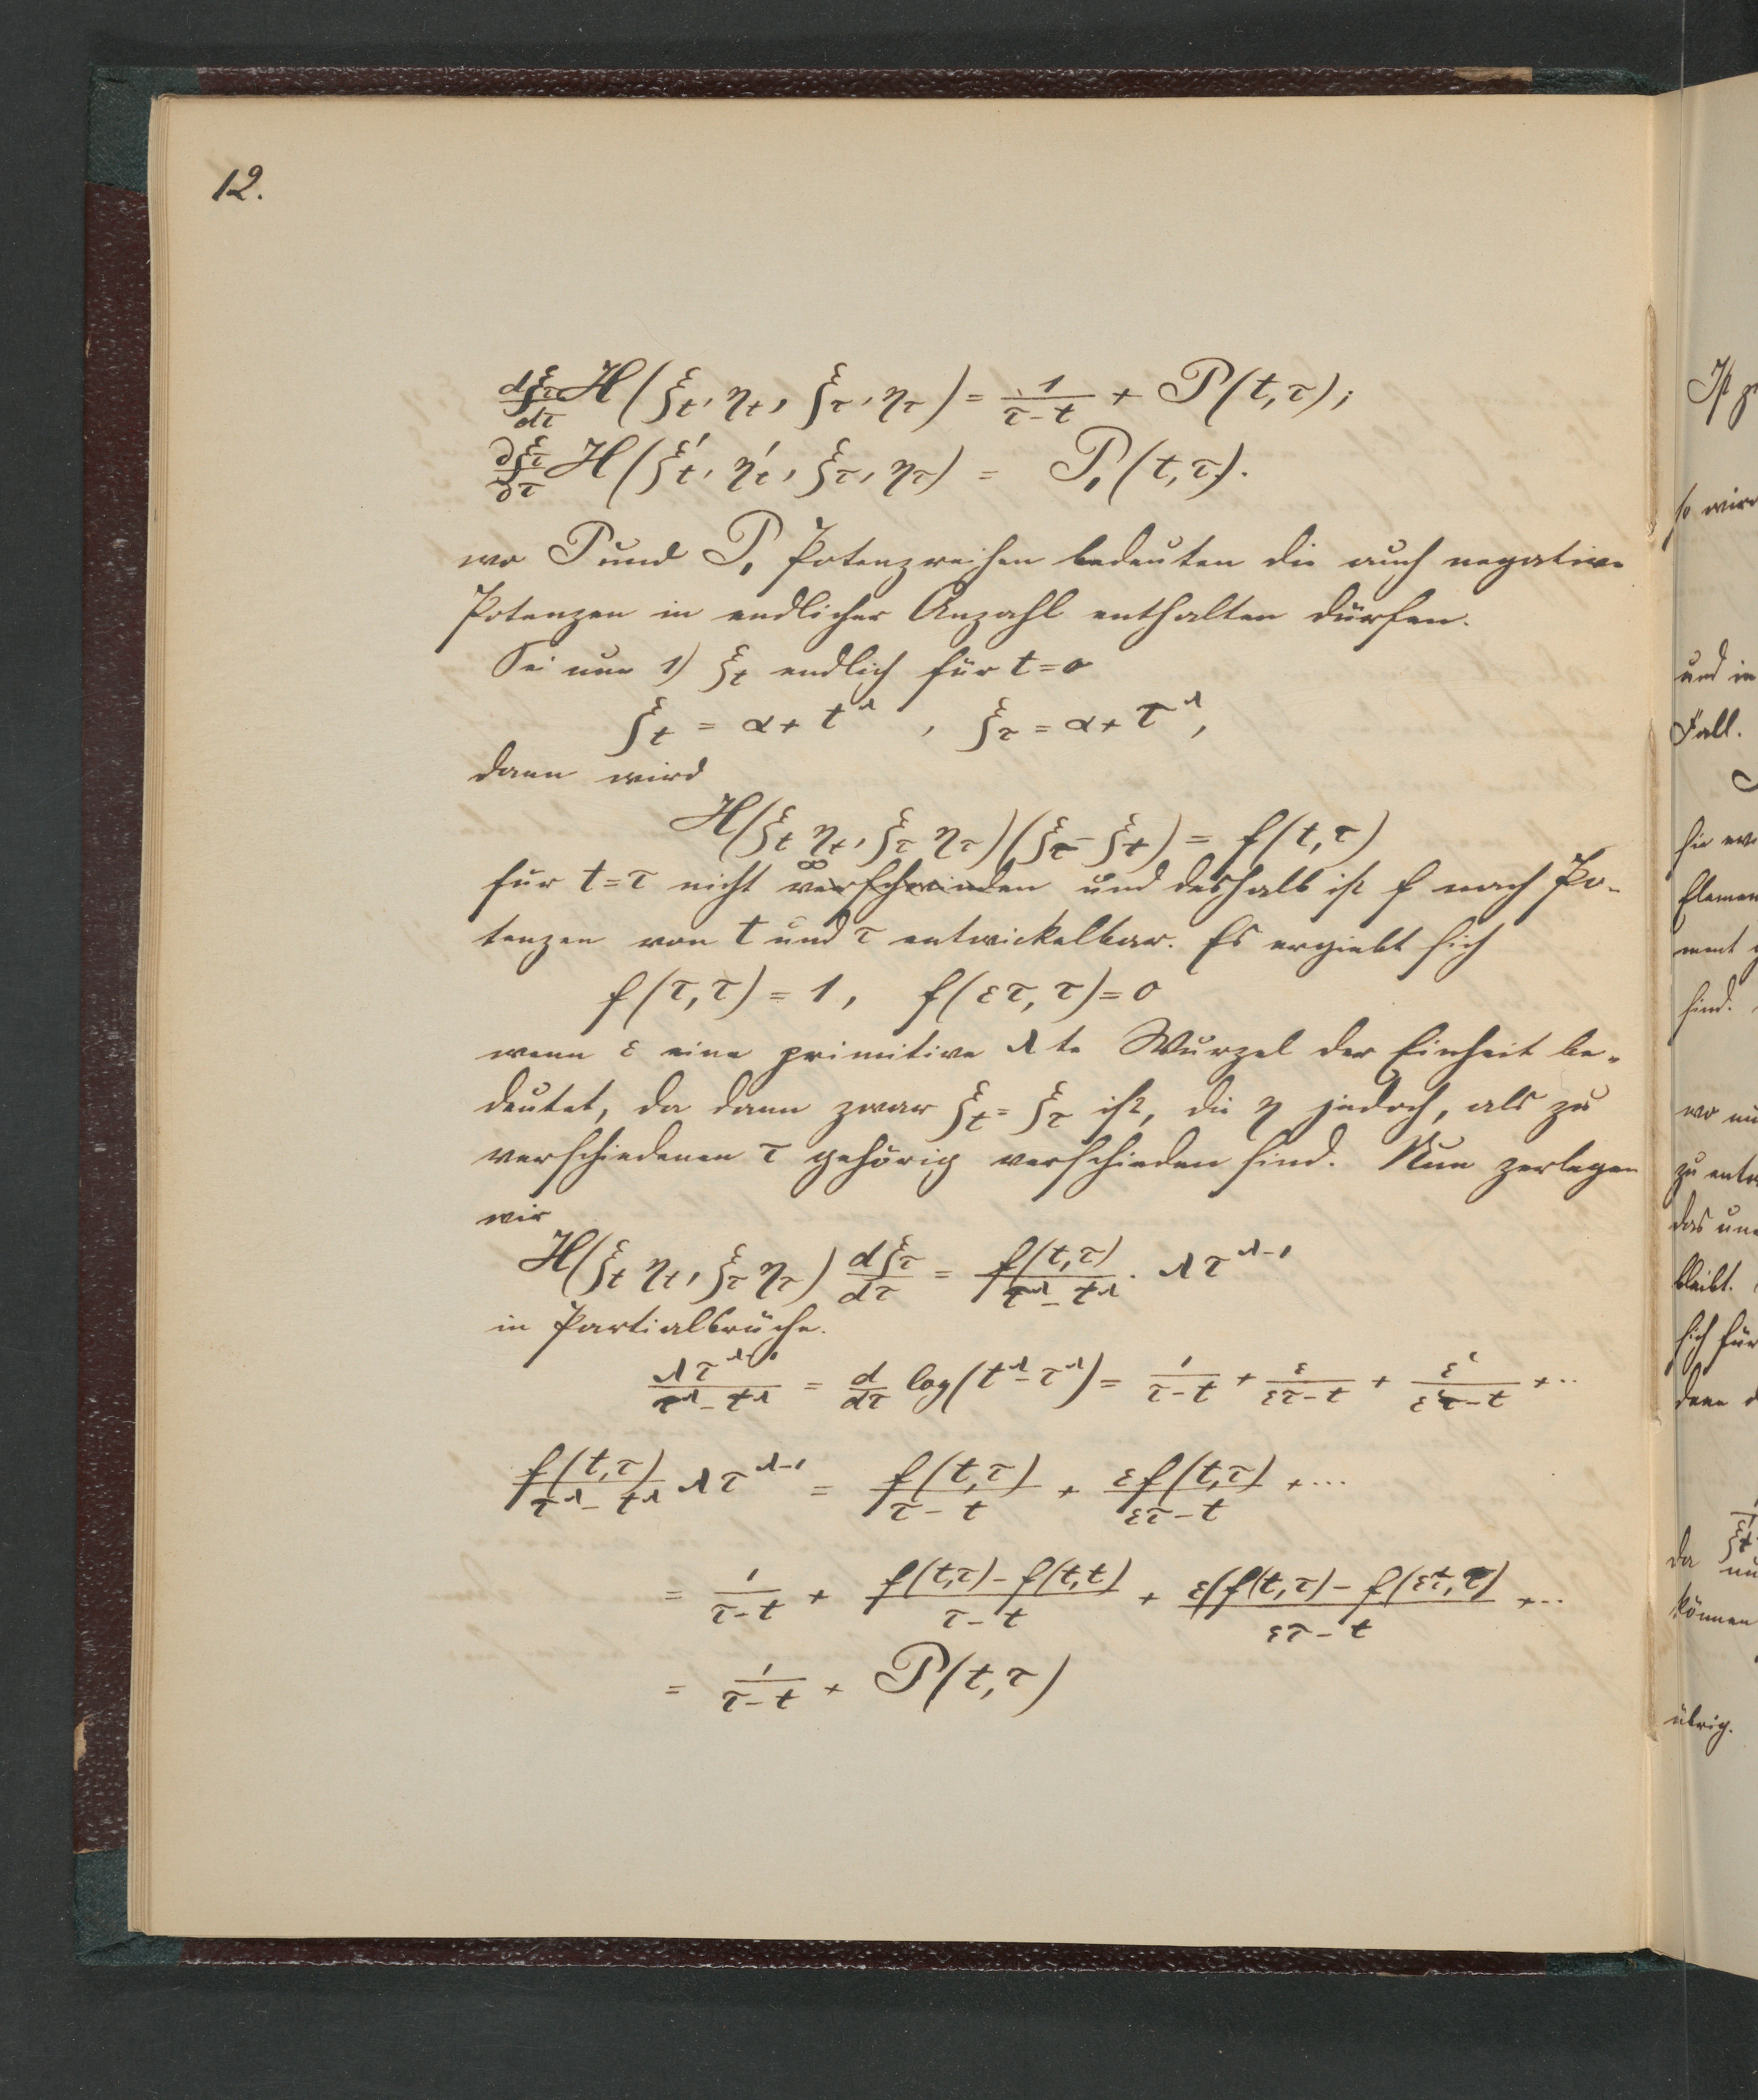 12.
dξ_τ/dτ H(ξ_t, η_t, ξ_τ, η_τ) = 1/(τ-t) + P(t,τ);
∂ξ_τ/∂τ H(ξ'_t, η'_t, ξ_τ, η_τ) = P_1(t,τ).
wo P und P_1 Potenzreihen bedeuten die auch negative
Potenzen in endlicher Anzahl enthalten dürfen.
Sei nun 1) ξ_t endlich für t=0
ξ_t = α + t^λ, ξ_τ = α + τ^λ,
dann wird
H(ξ_t η_t, ξ_τ η_τ)(ξ_τ - ξ_t) = f(t,τ)
für t=τ nicht ∞ verschwinden und deshalb ist f nach Po-
tenzen von t und τ entwickelbar. Es ergiebt sich
f(τ,τ) = 1, f(ετ,τ) = 0
wenn ε eine primitive λte Wurzel der Einheit be-
deutet, da dann zwar ξ_t = ξ_τ ist, die η jedoch, als zu
verschiedenen τ gehörig verschieden sind. Nun zerlegen
wir
H(ξ_t η_t, ξ_τ η_τ) dξ_τ/dτ = f(t,τ)/(τ^λ - t^λ) · λτ^{λ-1}
in Partialbrüche.
λτ^{λ-1}/(τ^λ - t^λ) = d/dτ log(t^λ - τ^λ) = 1/(τ-t) + ε/(ετ-t) + ε²/(ε²τ-t) + ..
f(t,τ)/(τ^λ - t^λ) λτ^{λ-1} = f(t,τ)/(τ-t) + εf(t,τ)/(ετ-t) + ....
= 1/(τ-t) + (f(t,τ) - f(t,t))/(τ-t) + ε(f(t,τ) - f(ετ,τ))/(ετ-t) + ..
= 1/(τ-t) + P(t,τ)
so wird
und in
Fall.
sind.
wo
bleibt.
sich für
da
können
übrig.